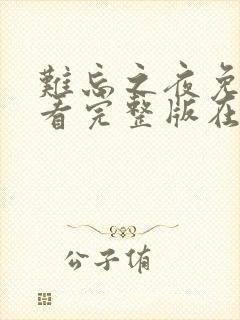 難忘之夜免
看完整版在
公子侑